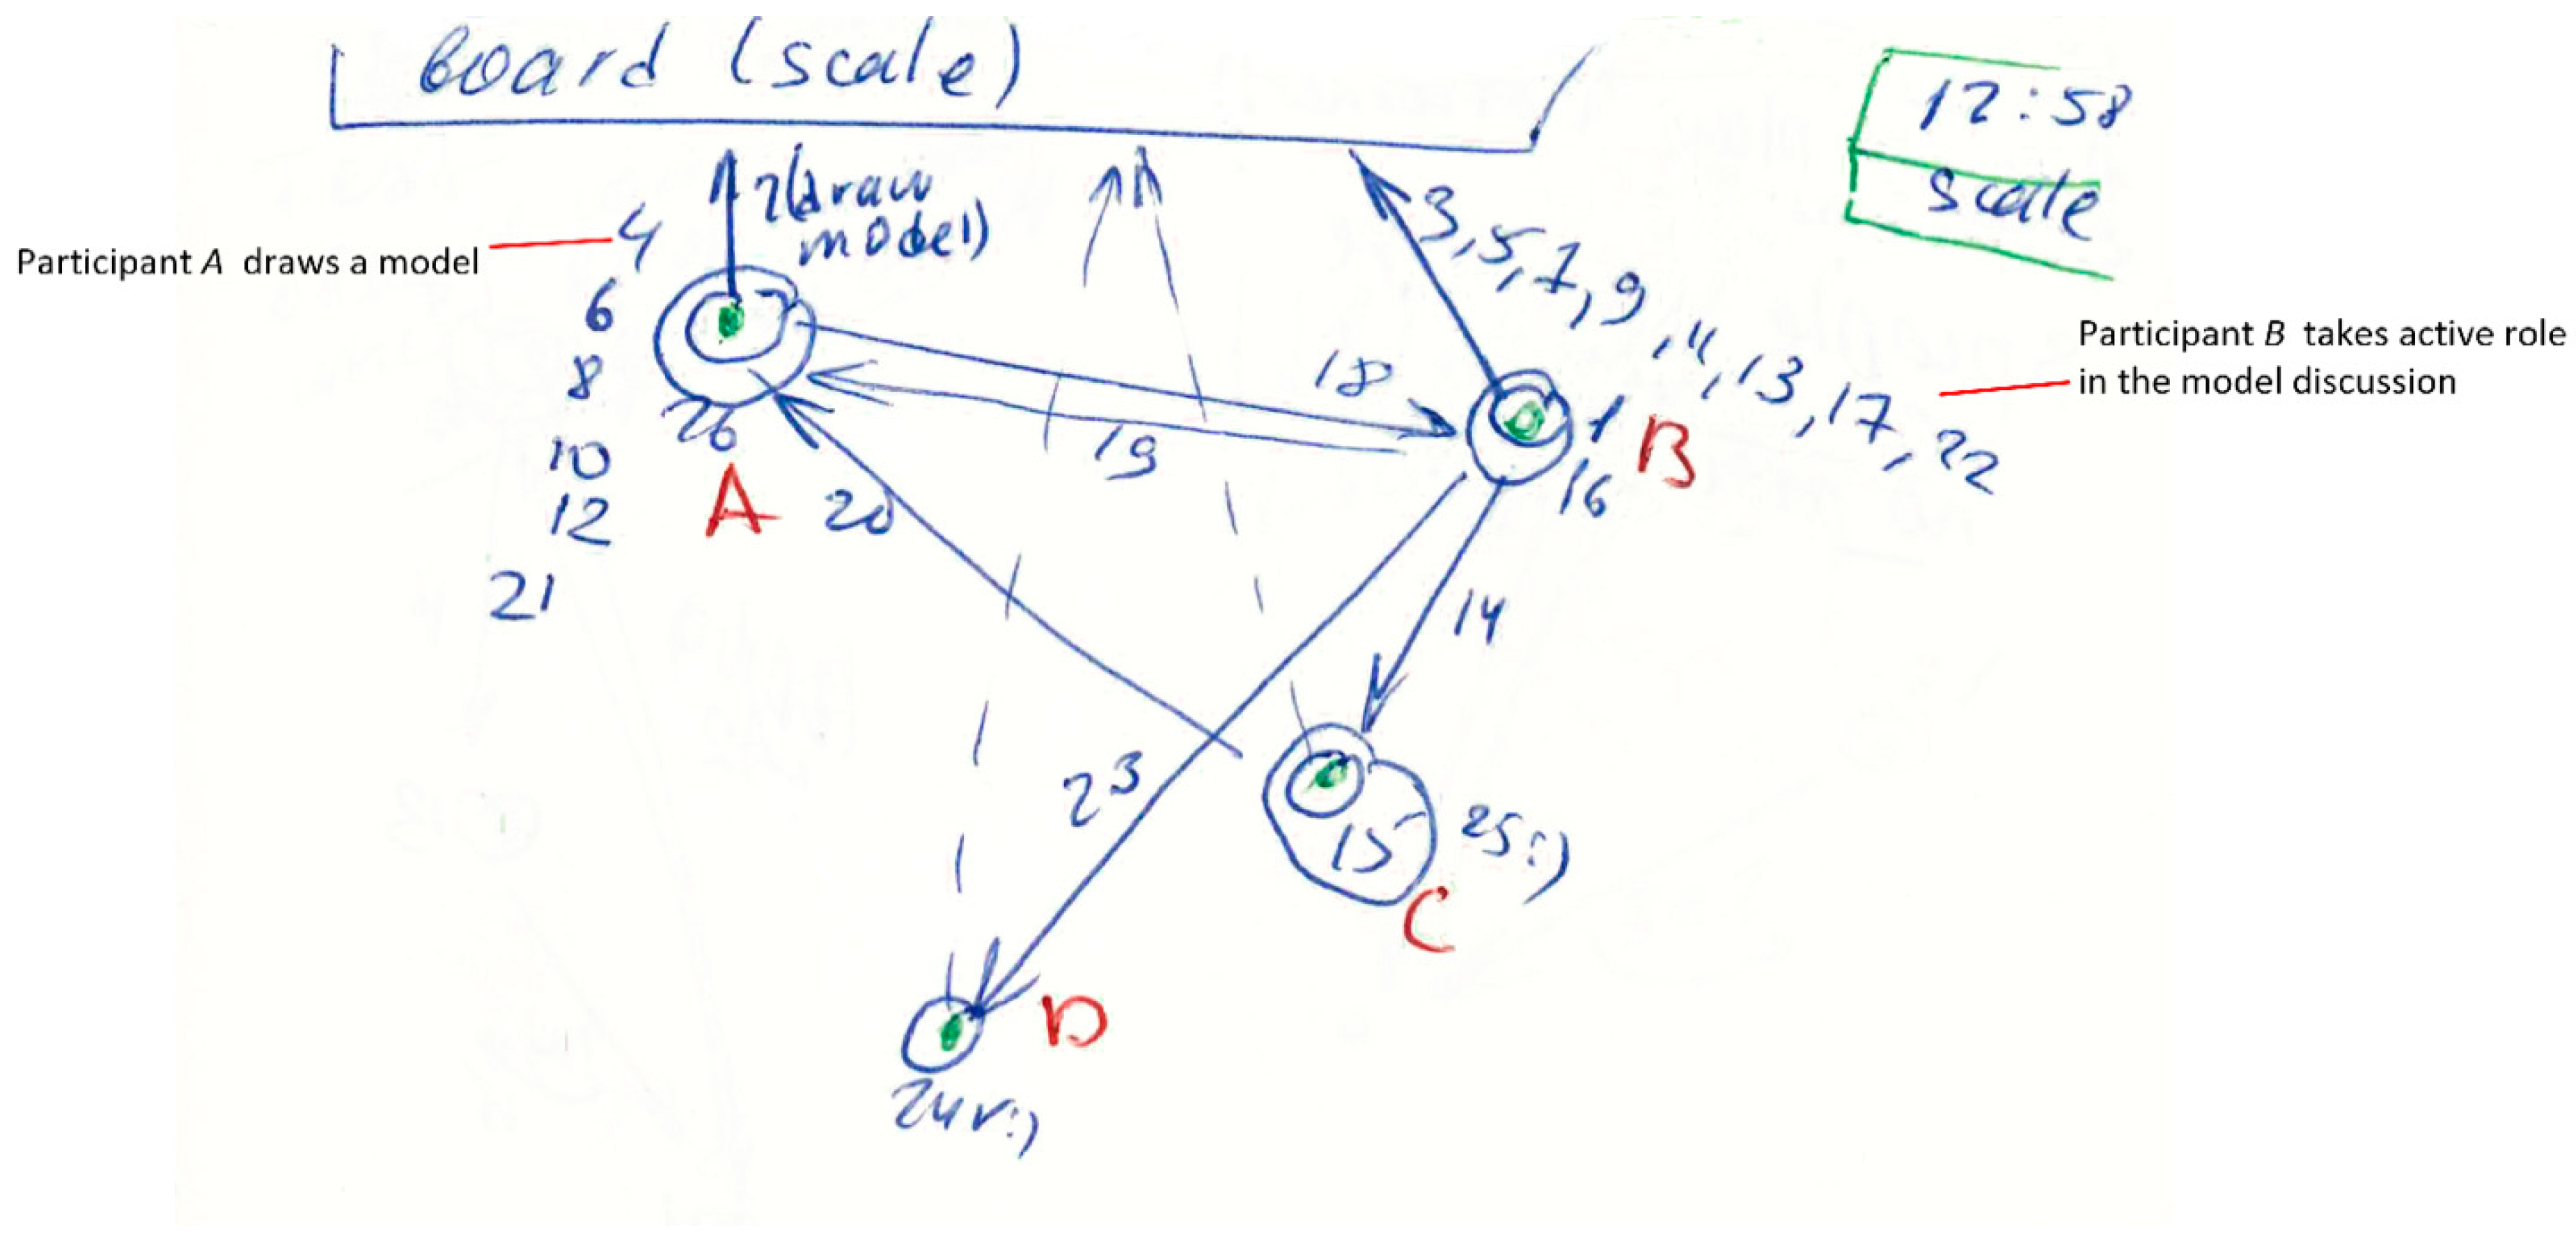 board (scale)
12:58
scale
2(draw
model)
4
Participant A draws a model
6
8
10
12
21
26
A
3, 5, 7, 9, 11, 13, 17, 22
Participant B takes active role
in the model discussion
18
19
1
B
16
20
14
23
15
25:)
C
D
24v:)